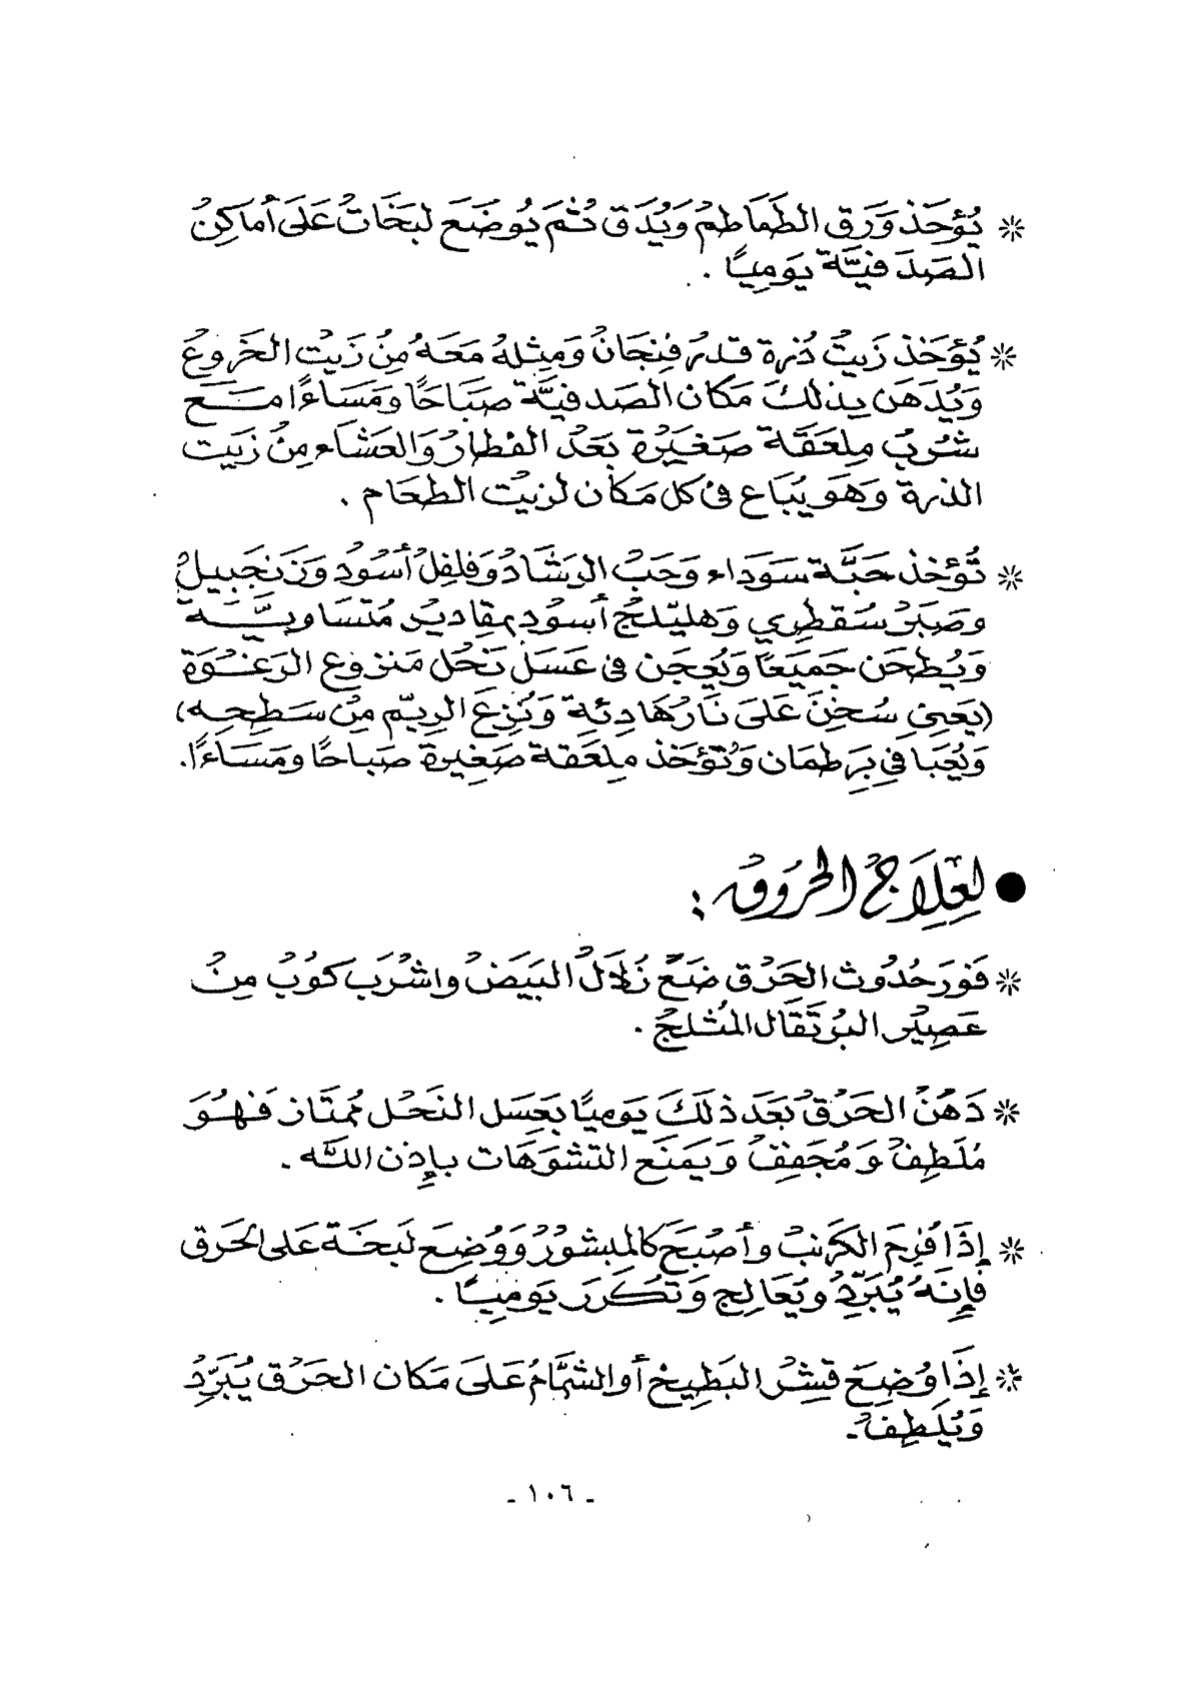 * يُؤخَذ وَرَق الطَمَاطِم وَيُدَق ثُم يُوضَع لبَخَات عَلَى أمَاكِن
الصَدَفيَّة يَوميًا .
* يُؤخَذ زَيت ذُرة قدر فِنجَان وَمِثله مَعَهُ مِن زَيت الخَروع
وَيُدهَن بذلكَ مَكان الصَدفيَّة صَبَاحًا وَمَسَاءًا مَع
شُرب مِلعَقَة صَغيرة بَعد الفطار وَالعَشَاء مِن زَيت
الذرة وَهوَ يُبَاع فى كل مَكان لزيت الطعَام .
* تُؤخذ حَبَّة سَودَاء وَحَب الرشَاد وَفلفل أسوَد وَزَنجَبيل
وَصَبر سُقطرِي وَهليلج أسود بمقادير مُتسَاويَّة
وَيُطحَن جَميعًا وَيُعجَن فى عَسَل نَحل مَنزوع الرَغوَة
(يَعنِى سُخِنَ عَلَى نَار هَادِئِة وَنُزِعَ الرِيّم مِن سَطحِه)
وَيُعبَا فِي بَرطمَان وَتُؤخَذ ملعَقة صَغِيرة صَباحًا ومَسَاءًا.
● لِعِلاَج الحُروق :
* فَورَ حُدُوث الحَرق ضَع زُلاَل البَيض واشرَب كوُب مِن
عَصِير البُرتقَال المُثلج .
* دَهن الحَرق بَعَد ذلَكَ يَوميًا بعَسل النَحل مُمتَاز فَهُوَ
مُلَطِف وَمُجَفِف وَيَمنَع التشوَهَات بإذن اللَّه .
* إذَا فُرِمَ الكرَنب وأصبَحَ كالمبشور وَوُضِعَ لَبخَة عَلى الحَرق
فَإِنَهُ يُبَرِّد ويُعَالِج وَتكَرر يَوميًا .
* إذَا وُضِعَ قشِر البَطِيخ أو الشمَّام عَلَى مَكان الحَرق يُبَرِّد
وَيُلَطِف .
- ١٠٦ -